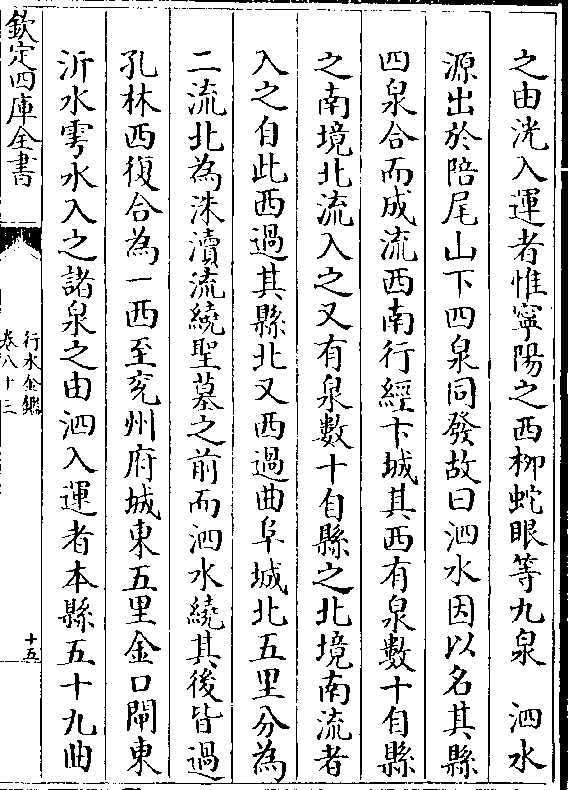 之由洸入運者惟寧陽之西柳蛇眼等九泉　泗水
源出於陪尾山下四泉同發故曰泗水因以名其縣
四泉合而成流西南行經卞城其西有泉數十自縣
之南境北流入之又有泉數十自縣之北境南流者
入之自此西過其縣北又西過曲阜城北五里分為
二流北為洙瀆流繞聖墓之前而泗水繞其後皆過
孔林西復合為一西至兖州府城東五里金口閘東
沂水雩水入之諸泉之由泗入運者本縣五十九曲
欽定四庫全書
行水金鑑
卷八十三
十五